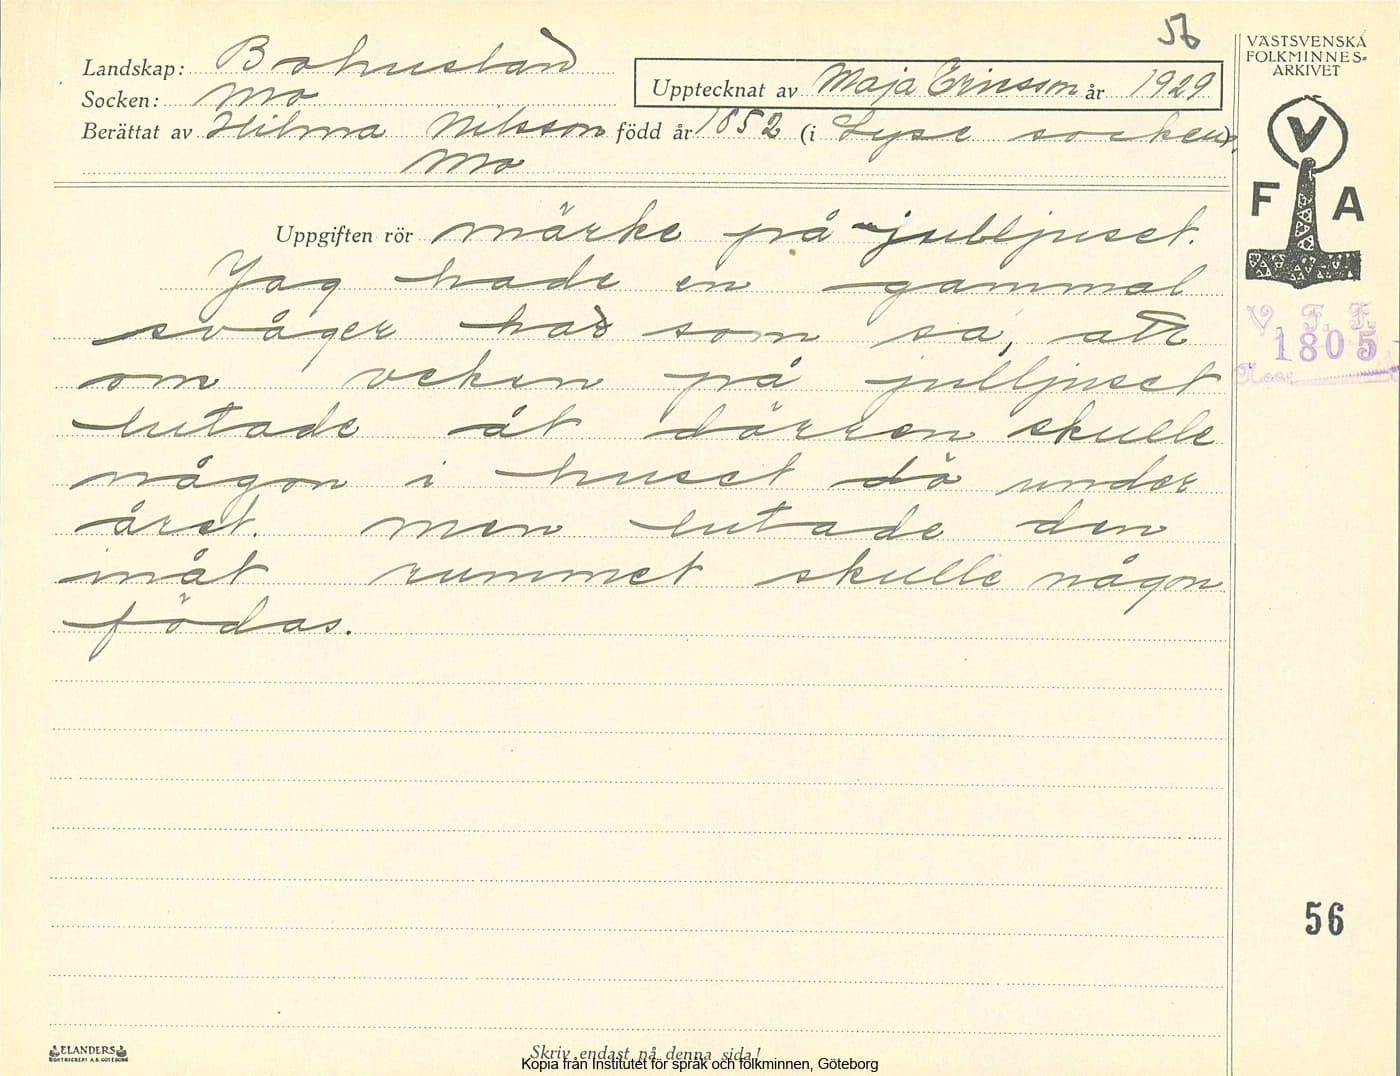 56
Landskap: Bohuslän
Socken: Mo
Upptecknat av Maja Ericsson år 1929
Berättat av Hilma Nilsson född år 1852 (i Lyse socken).
Mo
VÄSTSVENSKA
FOLKMINNES-
ARKIVET
V
F A
V. F. F.
1805
Uppgiften rör märke på julljuset.
Jag hade en gammal
svåger här som sa, att
om veken på julljuset
lutade åt dörren skulle
någon i huset dö under
året. men lutade den
inåt rummet skulle någon
födas.
56
ELANDERS
BOKTRYCKERI A.B. GÖTEBORG
Skriv endast på denna sida!
Kopia från Institutet för språk och folkminnen, Göteborg